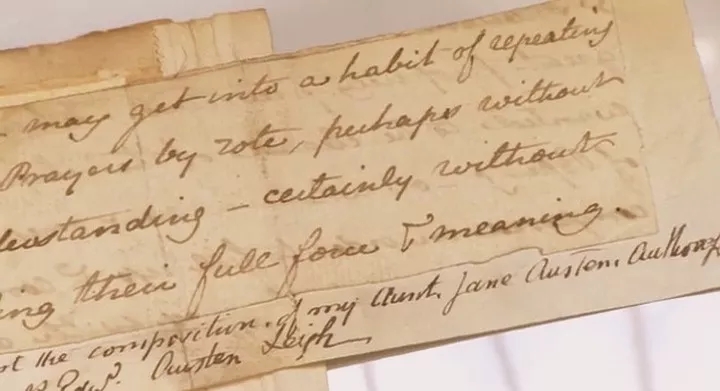 may get into a habit of repeating
Prayers by rote, perhaps without
derstanding – certainly without
ing their full force & meaning.
the composition, of my Aunt, Jane Austen, Author of
Edwd. Austen Leigh